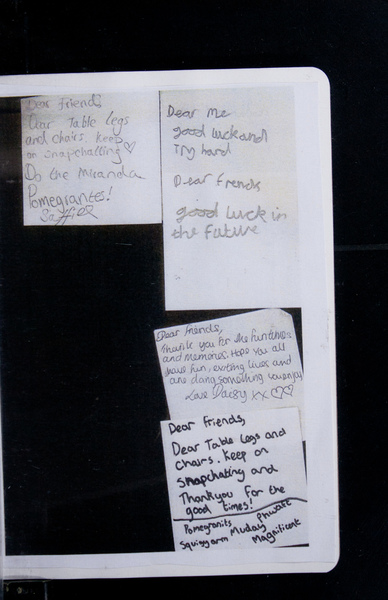 Dear friends
Dear Table legs
and chairs. keep
on snapchatting
Do the Miranda
Pomegrantes!
Saffie
Dear Me
good luck and
Try hard
Dear frends
good luck in
the future
Dear friends,
Thank you for the fun times
and memories. Hope you all
have fun, exciting lives and
are doing something you enjoy
Love Daisy xx
Dear friends,
Dear Table legs and
chairs. Keep on
snapchating and
Thankyou for the
good times!
Pomegranits
Squiggarm Muday Phwarr
Magnificent